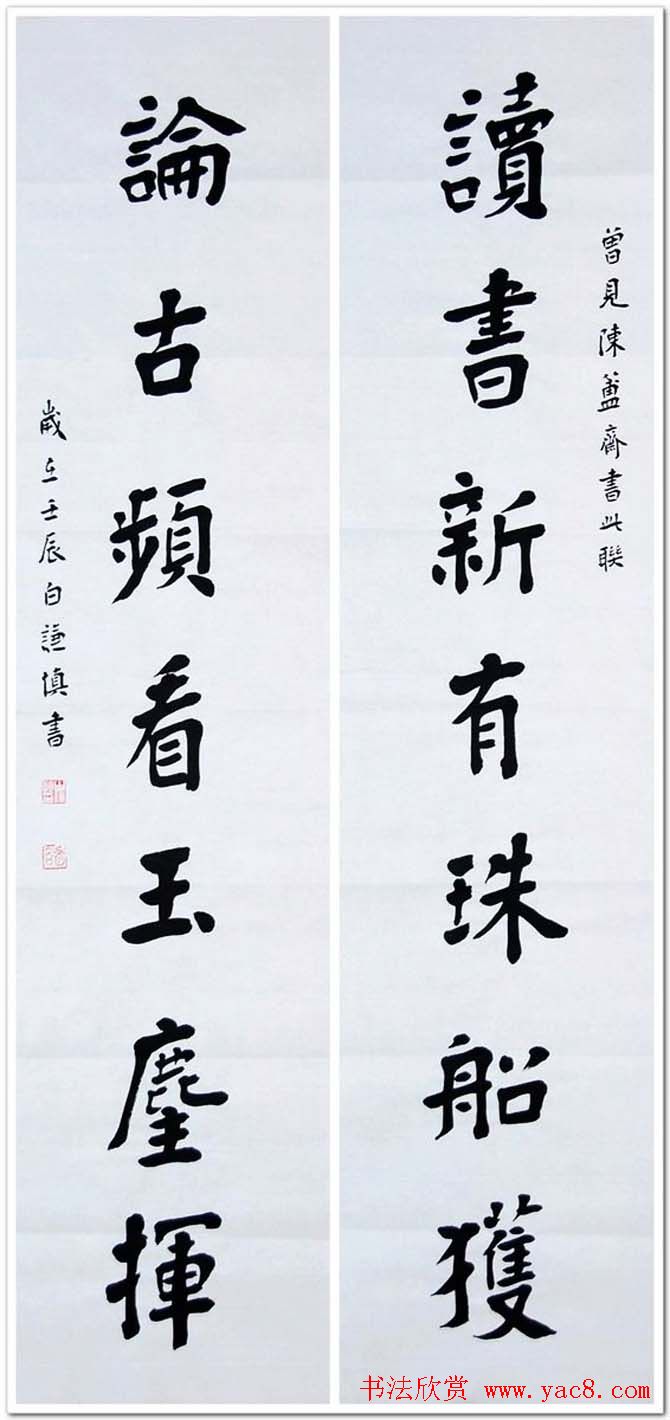 曾見陳簠齋書此聯
讀書新有珠船獲
論古頻看玉麈揮
歲在壬辰白謙慎書
书法欣赏 www.yac8.com